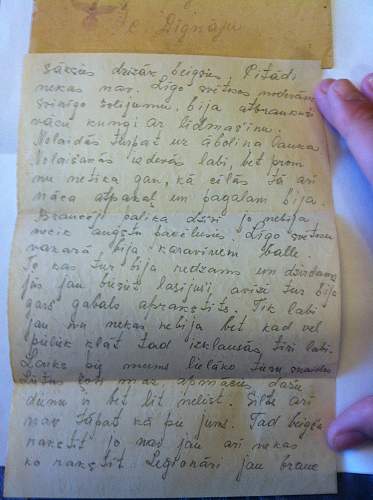 c Dignāju
sāksies drīzāk beigsies. Citādi
nekas nav. Līgo svētkos nodevām
svinīgo solijumu. bija atbraukuši
vācu kungi ar lidmašinu.
Nolaidās turpat uz āboliņa lauka
Nolaišanās izdevās labi, bet prom
nu netika gan, kā cēlās tā arī
nāca atpakaļ un pagalam bija.
Braucēji palika dzīvi jo nebija
necik augstu pacēlušies. Līgo svētku
vakarā bija karavīriem balle.
To kas tur bija redzams un dzirdams
jūs jau būsit lasijuši, avīzē tur bija
garš gabals aprakstīts. Tik labi
jau nu nekas nebija bet kad vēl
pieliek klāt tad izklausās tīri labi.
Laiks pie mums lielāko tiesu
ļoti maz apmācies dažu
dienu ir bet līt nelīst. Silts arī
nav tāpat kā pie jums. Tad beigšu
rakstīt jo nav jau arī nekas
ko rakstīt Leģionāri jau brauc